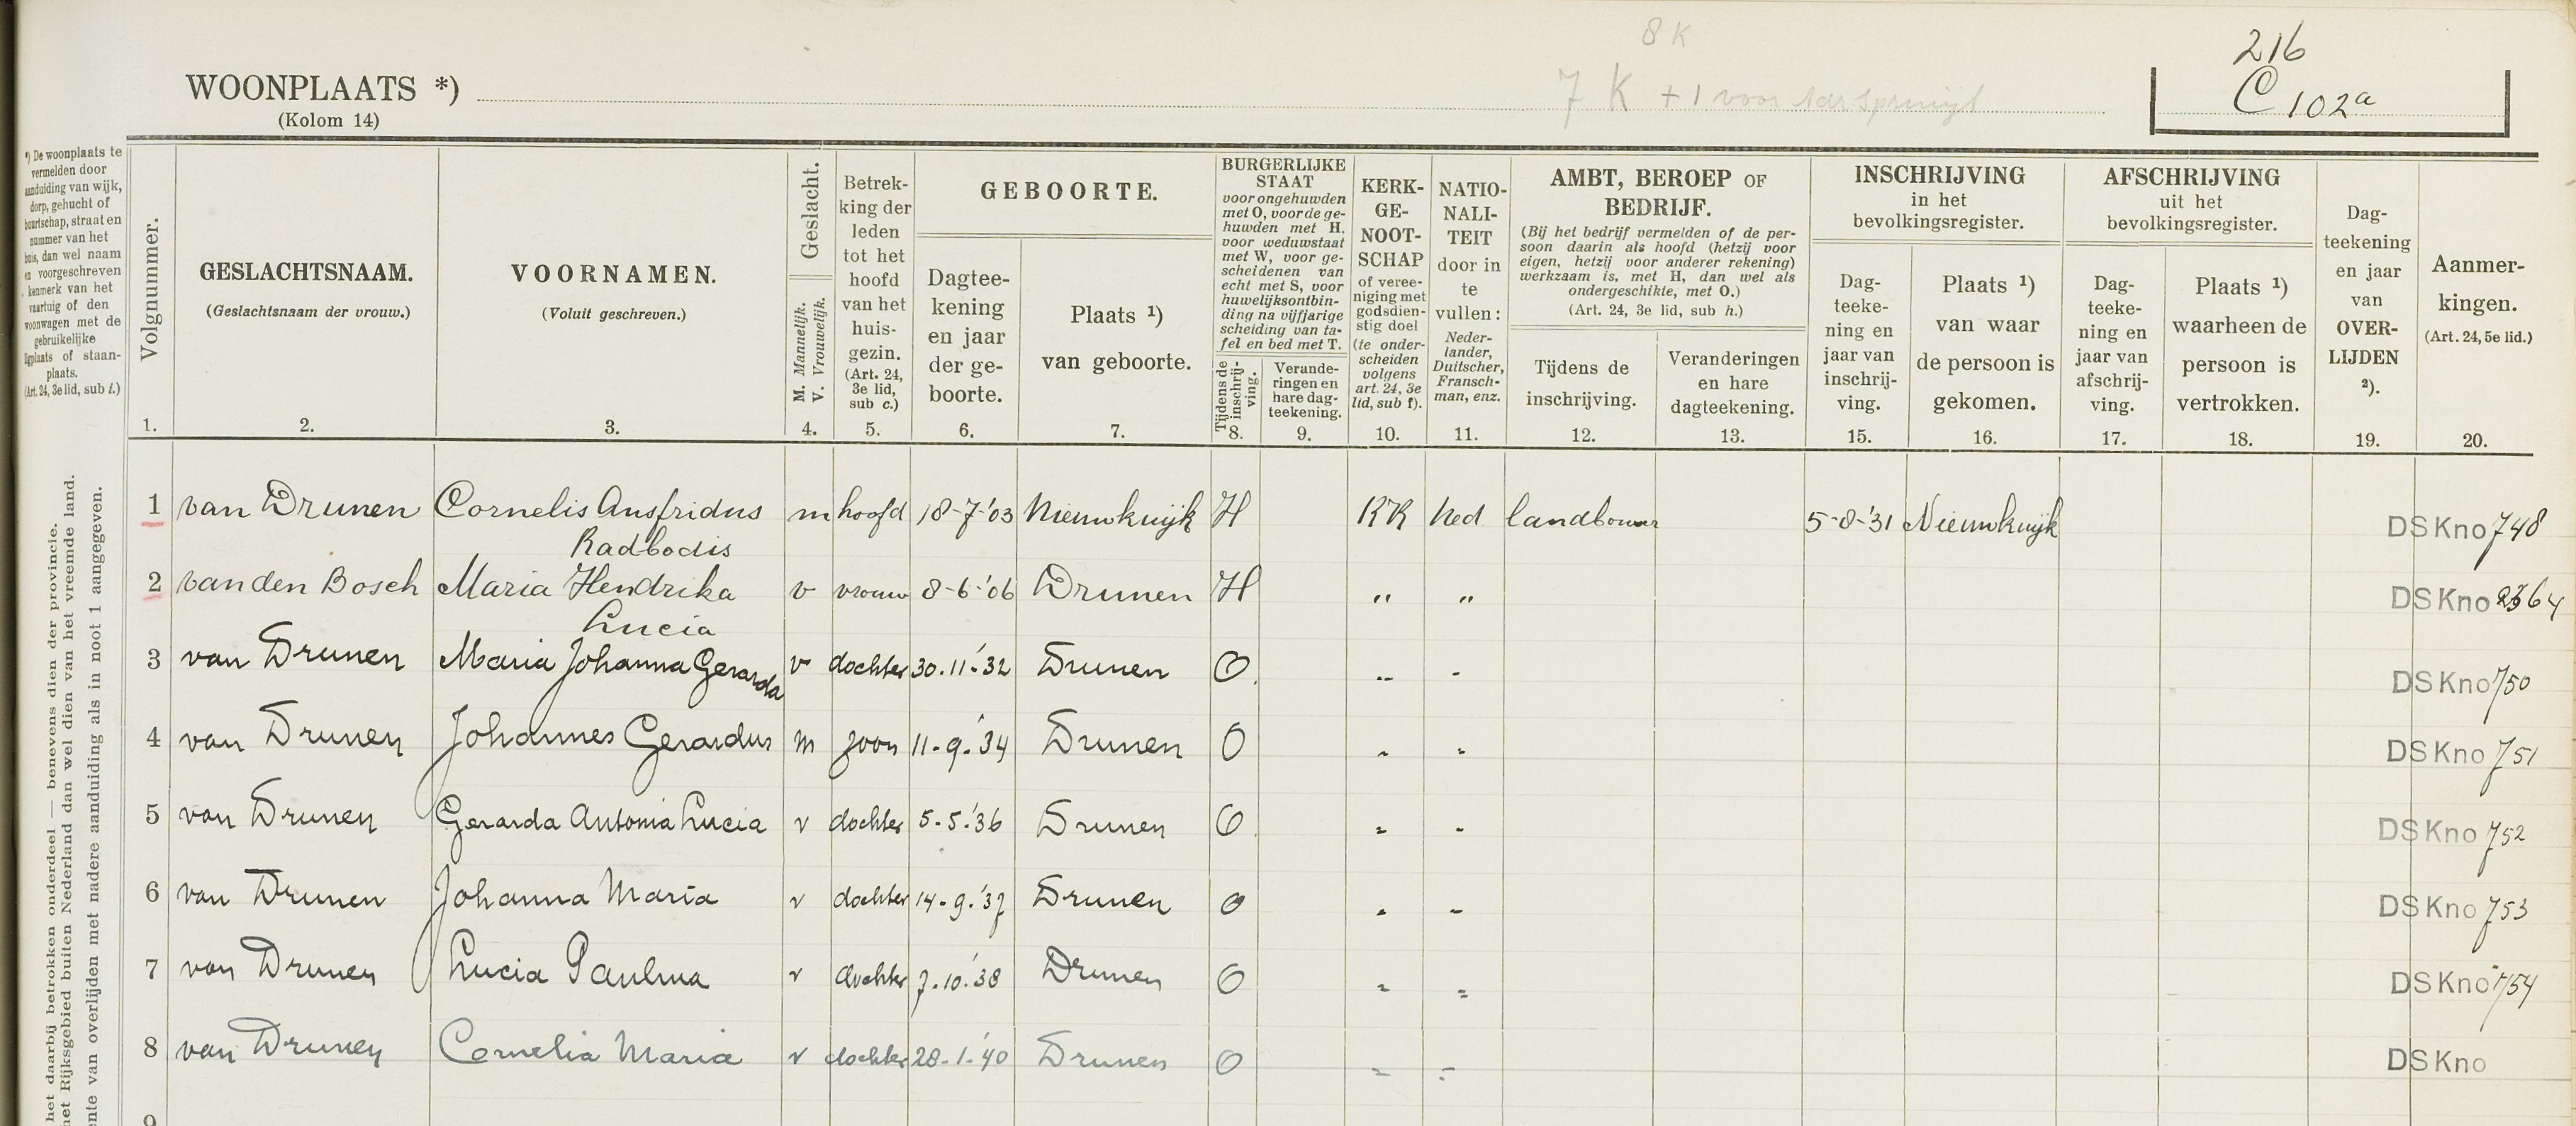 8 K
7 K + 1 voor
216
C 102a
WOONPLAATS *)
(Kolom 14)
*) De woonplaats te
vermelden door
aanduiding van wijk,
dorp, gehucht of
buurtschap, straat en
nummer van het
huis, dan wel naam
en voorgeschreven
kenmerk van het
vaartuig of den
woonwagen met de
gebruikelijke
ligplaats of staan-
plaats.
(Art. 24, 3e lid, sub i.)
Volgnummer.
1.
GESLACHTSNAAM.
(Geslachtsnaam der vrouw.)
2.
VOORNAMEN.
(Voluit geschreven.)
3.
Geslacht.
M. Mannelijk.
V. Vrouwelijk.
4.
Betrek-
king der
leden
tot het
hoofd
van het
huis-
gezin.
(Art. 24,
3e lid,
sub c.)
5.
GEBOORTE.
Dagtee-
kening
en jaar
der ge-
boorte.
6.
Plaats ¹)
van geboorte.
7.
BURGERLIJKE
STAAT
voor ongehuwden
met O, voor de ge-
huwden met H,
voor weduwstaat
met W, voor ge-
scheidenen van
echt met S, voor
huwelijksontbin-
ding na vijfjarige
scheiding van ta-
fel en bed met T.
Tijdens de
inschrij-
ving.
8.
Verande-
ringen en
hare dag-
teekening.
9.
KERK-
GE-
NOOT-
SCHAP
of veree-
niging met
godsdien-
stig doel
(te onder-
scheiden
volgens
art. 24, 3e
lid, sub f).
10.
NATIO-
NALI-
TEIT
door in
te
vullen:
Neder-
lander,
Duitscher,
Fransch-
man, enz.
11.
AMBT, BEROEP OF
BEDRIJF.
(Bij het bedrijf vermelden of de per-
soon daarin als hoofd (hetzij voor
eigen, hetzij voor anderer rekening)
werkzaam is, met H, dan wel als
ondergeschikte, met O.)
(Art. 24, 3e lid, sub h.)
Tijdens de
inschrijving.
12.
Veranderingen
en hare
dagteekening.
13.
INSCHRIJVING
in het
bevolkingsregister.
Dag-
teeke-
ning en
jaar van
inschrij-
ving.
15.
Plaats ¹)
van waar
de persoon is
gekomen.
16.
AFSCHRIJVING
uit het
bevolkingsregister.
Dag-
teeke-
ning en
jaar van
afschrij-
ving.
17.
Plaats ¹)
waarheen de
persoon is
vertrokken.
18.
Dag-
teekening
en jaar
van
OVER-
LIJDEN
²).
19.
Aanmer-
kingen.
(Art. 24, 5e lid.)
20.
1 van Drunen Cornelis Ansfridus m hoofd 18-7-'03 Nieuwkuijk H RK Ned landbouwer 5-8-'31 Nieuwkuijk DSKno 748
Radbodis
2 van den Bosch Maria Hendrika v vrouw 8-6-'06 Drunen H " " DSKno 2364
Lucia
3 van Drunen Maria Johanna Gerarda v dochter 30.11-'32 Drunen O " " DSKno 750
4 van Drunen Johannes Gerardus m zoon 11-9-'34 Drunen O " " DSKno 751
5 van Drunen Gerarda Antonia Lucia v dochter 5-5-'36 Drunen O " " DSKno 752
6 van Drunen Johanna Maria v dochter 14-9-'37 Drunen O " " DSKno 753
7 van Drunen Lucia Paulina v dochter 7-10-'38 Drunen O " " DSKno 754
8 van Drunen Cornelia Maria v dochter 28-1-'40 Drunen O " " DSKno
9
het daarbij betrokken onderdeel — benevens dien der provincie.
het Rijksgebied buiten Nederland dan wel dien van het vreemde land.
ente van overlijden met nadere aanduiding als in noot 1 aangegeven.